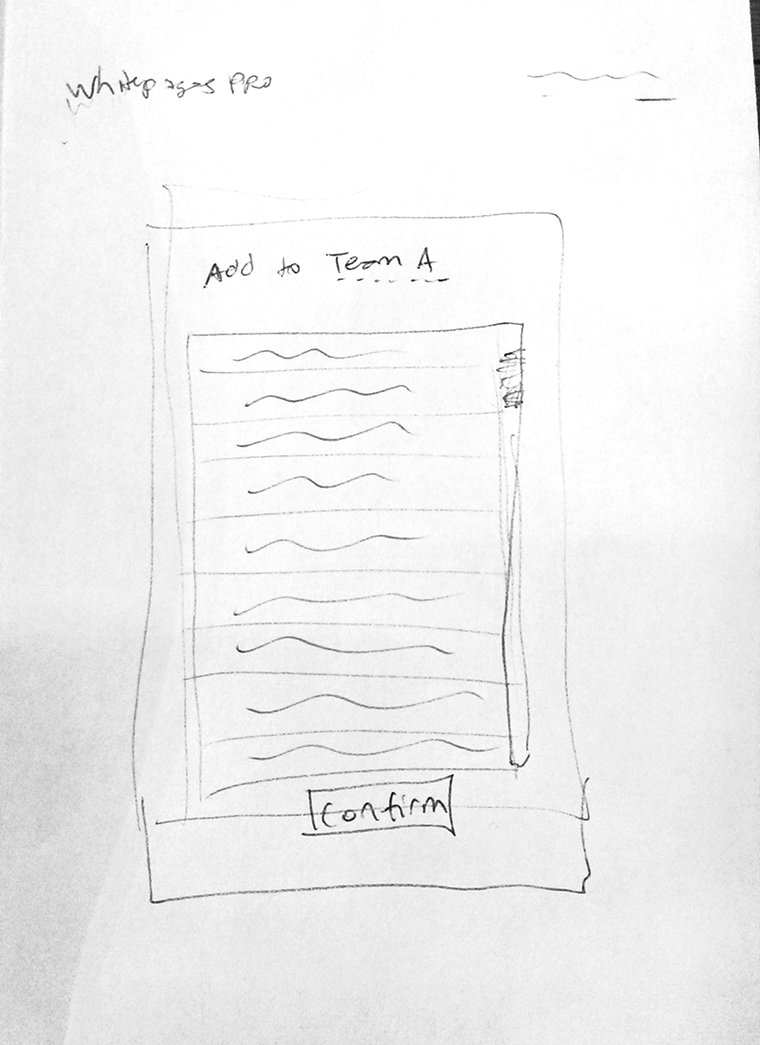 Whitepages PRO
Add to Team A
Confirm